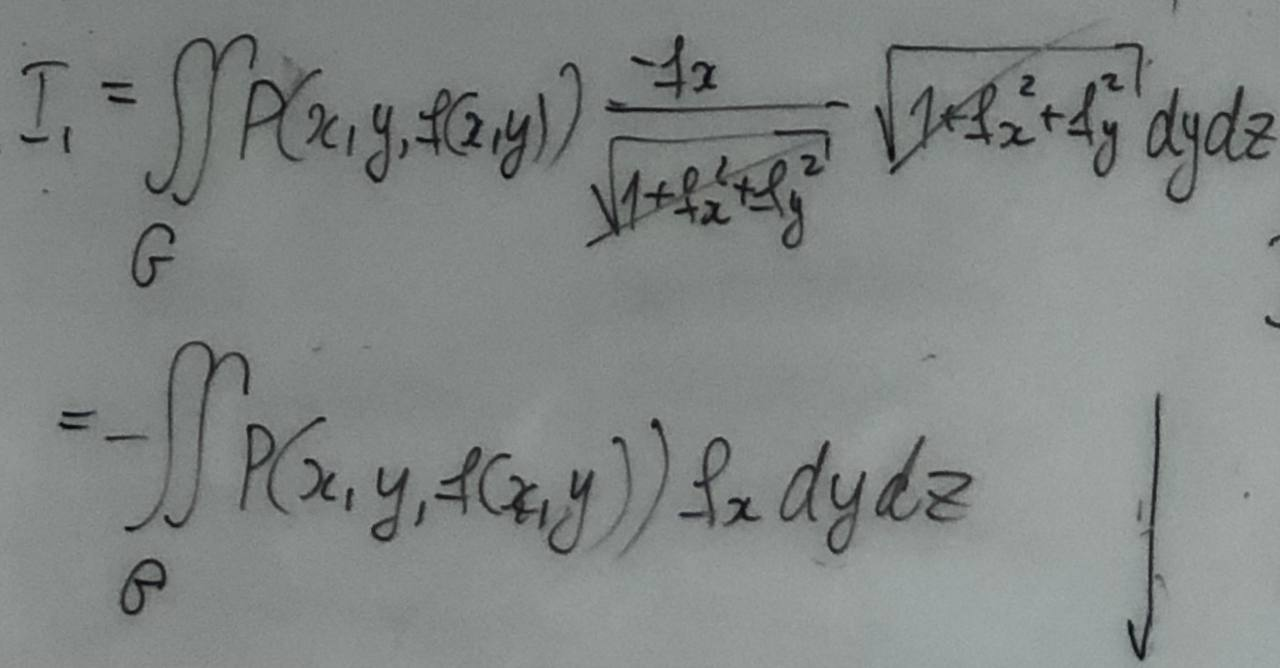 I₁ = ∬ P(x, y, f(x,y)) (-fx / √(1+fx²+fy²)) √(1+fx²+fy²) dydz
G
= - ∬ P(x, y, f(x,y)) fx dydz
G